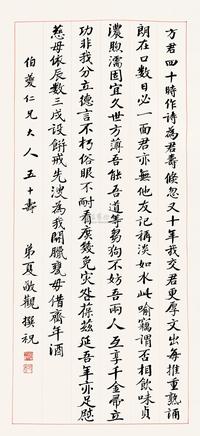 方君四十時作詩為君壽倏忽又十年我交君更厚文出每推重熟誦
朗在口數日必一面君亦無他友記稱淡如水此喻竊謂否相飲味貞
濃煦濡固宜久世方薄吾能吾道等芻狗不妨吾兩人互享千金帚立
功非我分立德言不朽俗眼不耐看庶幾免災咎葆茲延吾年亦足慰
慈母依辰數三戌設餅戒先溲為我開臘甕毋借齊年酒
伯夔仁兄大人五十壽
弟夏敬觀撰祝